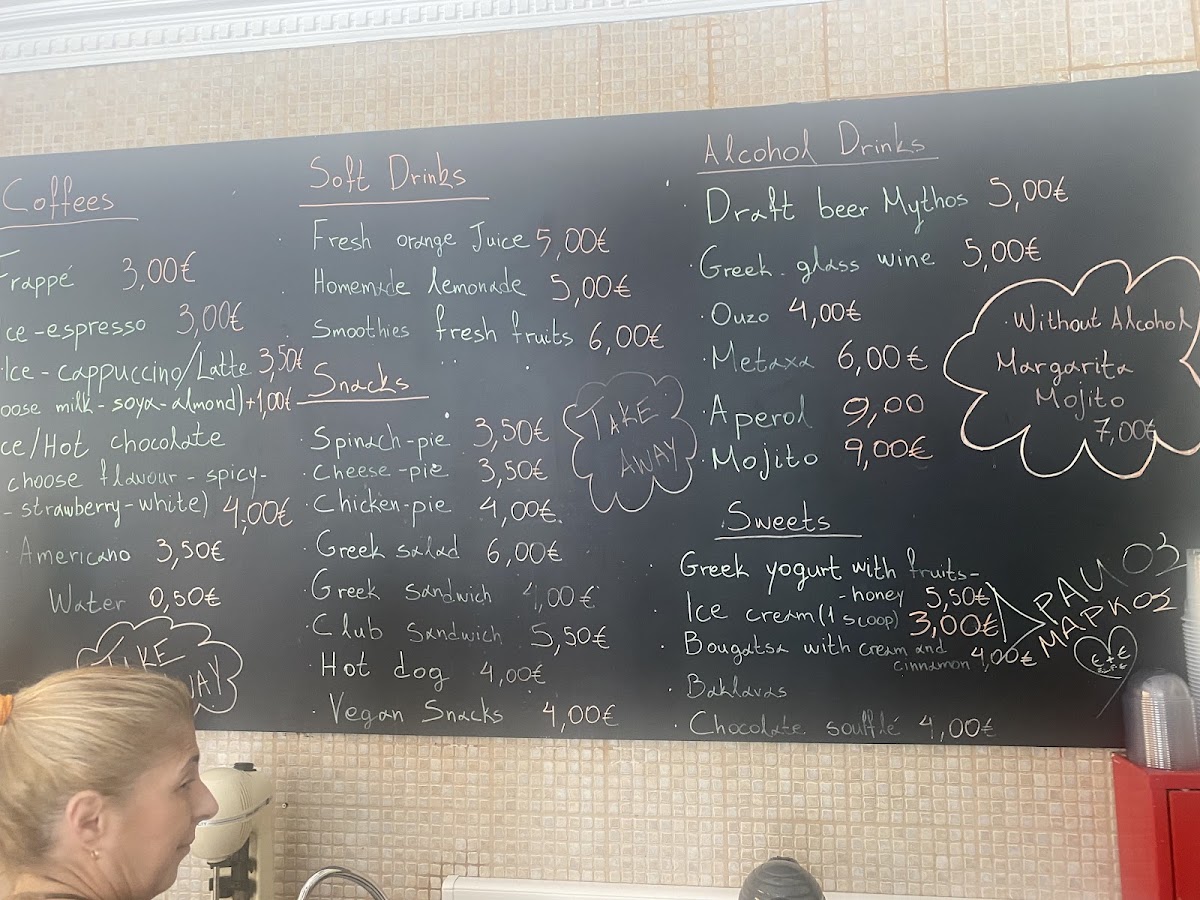 Coffees
Frappé 3,00€
Ice-espresso 3,00€
Ice - cappuccino/Latte 3,50€
oose milk - soya - almond) +1,00€
ce/Hot chocolate
choose flavour - spicy-
- strawberry - white) 4,00€
Americano 3,50€
Water 0,50€
TAKE
AWAY
Soft Drinks
Fresh orange Juice 5,00€
Homemade lemonade 5,00€
Smoothies fresh fruits 6,00€
Snacks
Spinach-pie 3,50€
Cheese-pie 3,50€
Chicken-pie 4,00€
Greek salad 6,00€
Greek sandwich 4,00€
Club sandwich 5,50€
Hot dog 4,00€
Vegan Snacks 4,00€
TAKE
AWAY
Alcohol Drinks
Draft beer Mythos 5,00€
Greek glass wine 5,00€
Ouzo 4,00€
Metaxa 6,00€
Aperol 9,00
Mojito 9,00€
Without Alcohol
Margarita
Mojito
7,00€
Sweets
Greek yogurt with fruits-
-honey 5,50€
Ice cream (1 scoop) 3,00€
Bougatsa with cream and
cinnamon 4,00€
Baklavas
Chocolate soufflé 4,00€